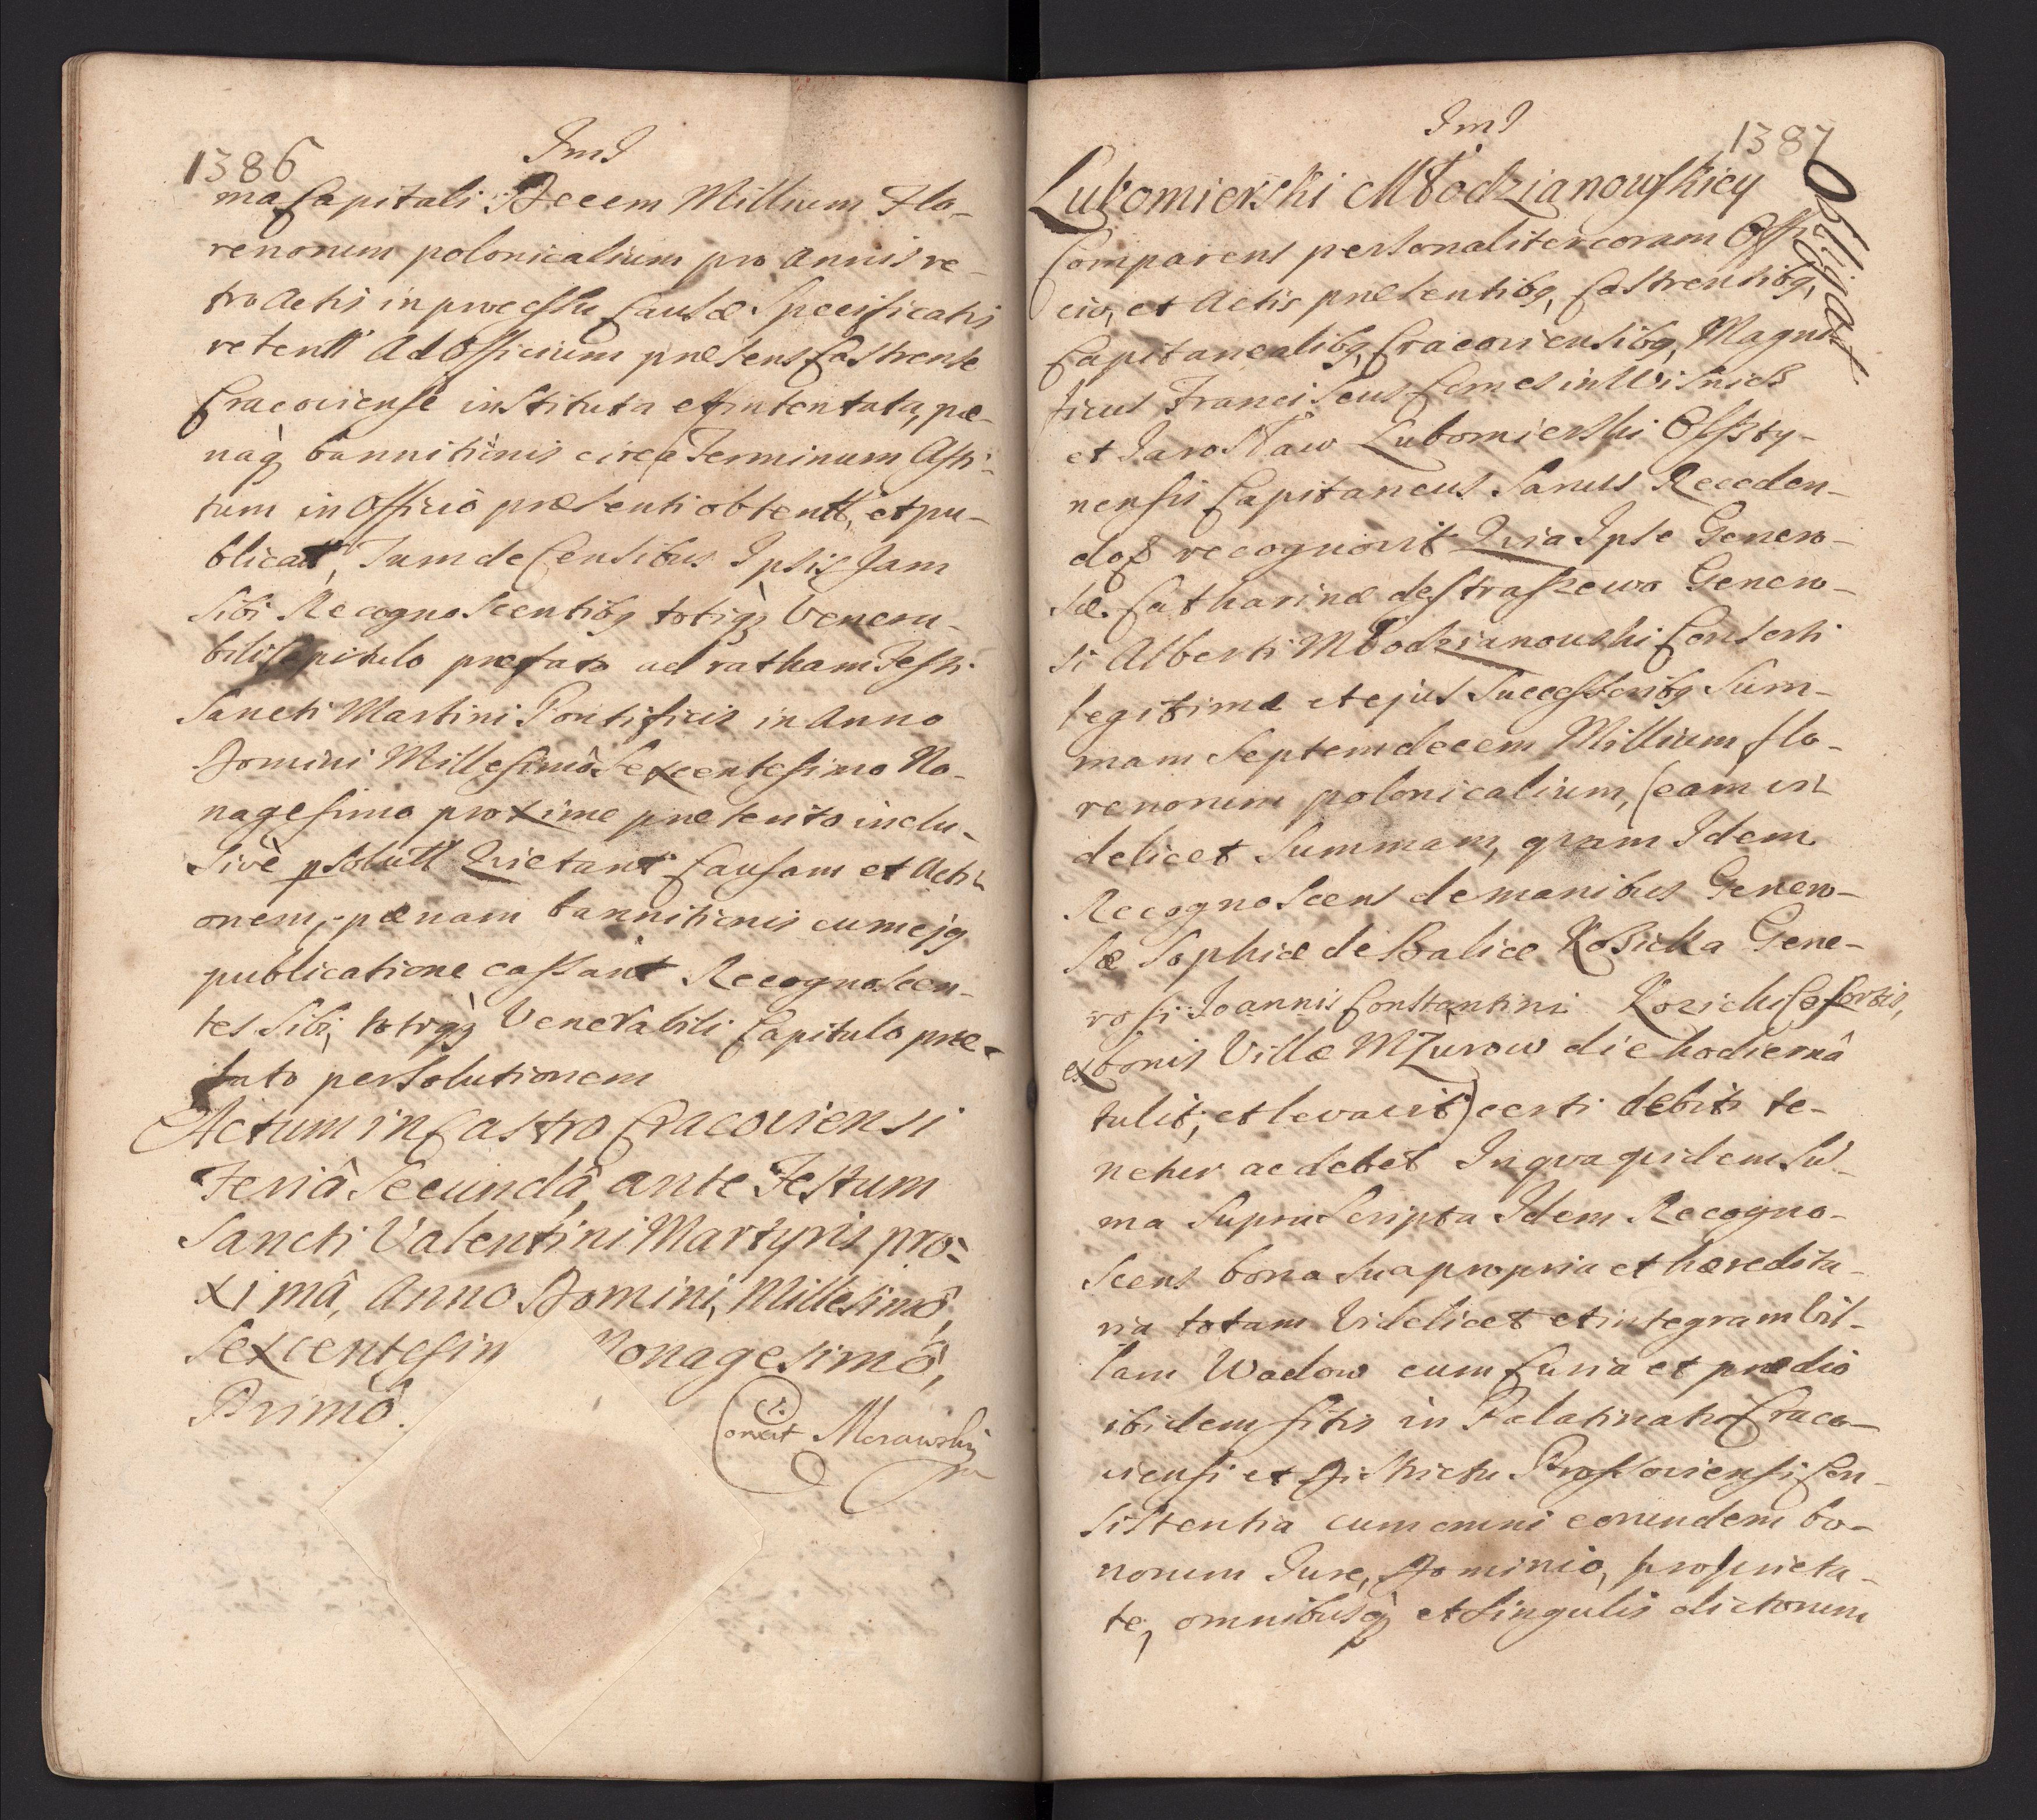 1386
JmJ
ma Capitali Decem Millium Flo-
renorum polonicalium pro Annis re-
tro Actis in processu Causæ Specificatis
retentt Ad Officium præsens Castrense
Cracoviense instituta et intentata, pæ-
nàq bannitionis circa Terminum Assi-
tum in Officiò præsenti obtentt, et pu-
blicatt, Tum de Censibus Ipsis Jam
Sibi Recognoscentibq totiqz Venera-
bili Capitulo præfato ad ratham Festi
Sancti Martini Pontificis in Anno
Domini Millesimô Sexcentesimo No-
nagesimo proxime præterito inclu-
sivè psolutt Quietant Causam et Acti-
onem, pænam bannitionis cum ejq
publicatione cassant Recognoscen-
tes Sibi, totiqz Venerabili Capitulo præ-
fato persolutionem
Actum in Castro Cracoviensi
Feriâ Secundâ, ante Festum
Sancti Valentini Martyris pro-
ximâ, Anno Domini, Millesimô,
Sexcentesim Nonagesimô,
Primô.
Correxit Morawski
1387
JmJ
Lubomierski Młodzianowskiey
Obligat
Comparens personaliter coram Offi-
cio, et Actis præsentibq, Castrensibq,
Capitanealibq, Cracoviensibq, Magni-
ficus Franciscus Comes in Wisnicz
et Jarosław Lubomierski Olszty-
nensis Capitaneus Sanus Receden-
doq recognovit Quia Ipse Genero-
sæ Catharinæ de Straszewo Genero-
si Alberti Młodzianowski Consorti
legitimæ et ejus Successoribq Sum-
mam Septemdecem Millium flo-
renorum polonicalium, (eam vi-
delicet Summam, quam Idem
Recognoscens de manibus Genero-
sæ Sophiæ de Balice Kozicka Gene-
rosi Joannis Constantini Kozicki Cosortis,
ex bonis Villæ Mzurow die hodiernâ
tulit, et levavit) certi debiti te-
netur ac debet In qua quidem Su-
ma Suprascripta Idem Recogno-
scens bona sua propria et hæredita-
ria totam Videlicet et integram Vil-
lam Wadow cum Curia et prædio
ibidem sitis in Palatinatu Craco-
viensi et Districtu Prossoviensi Con-
sistentia cum omni eorundem bo-
norum Jure, Dominio, proprieta-
te, omnibusqz et Singulis dictorum